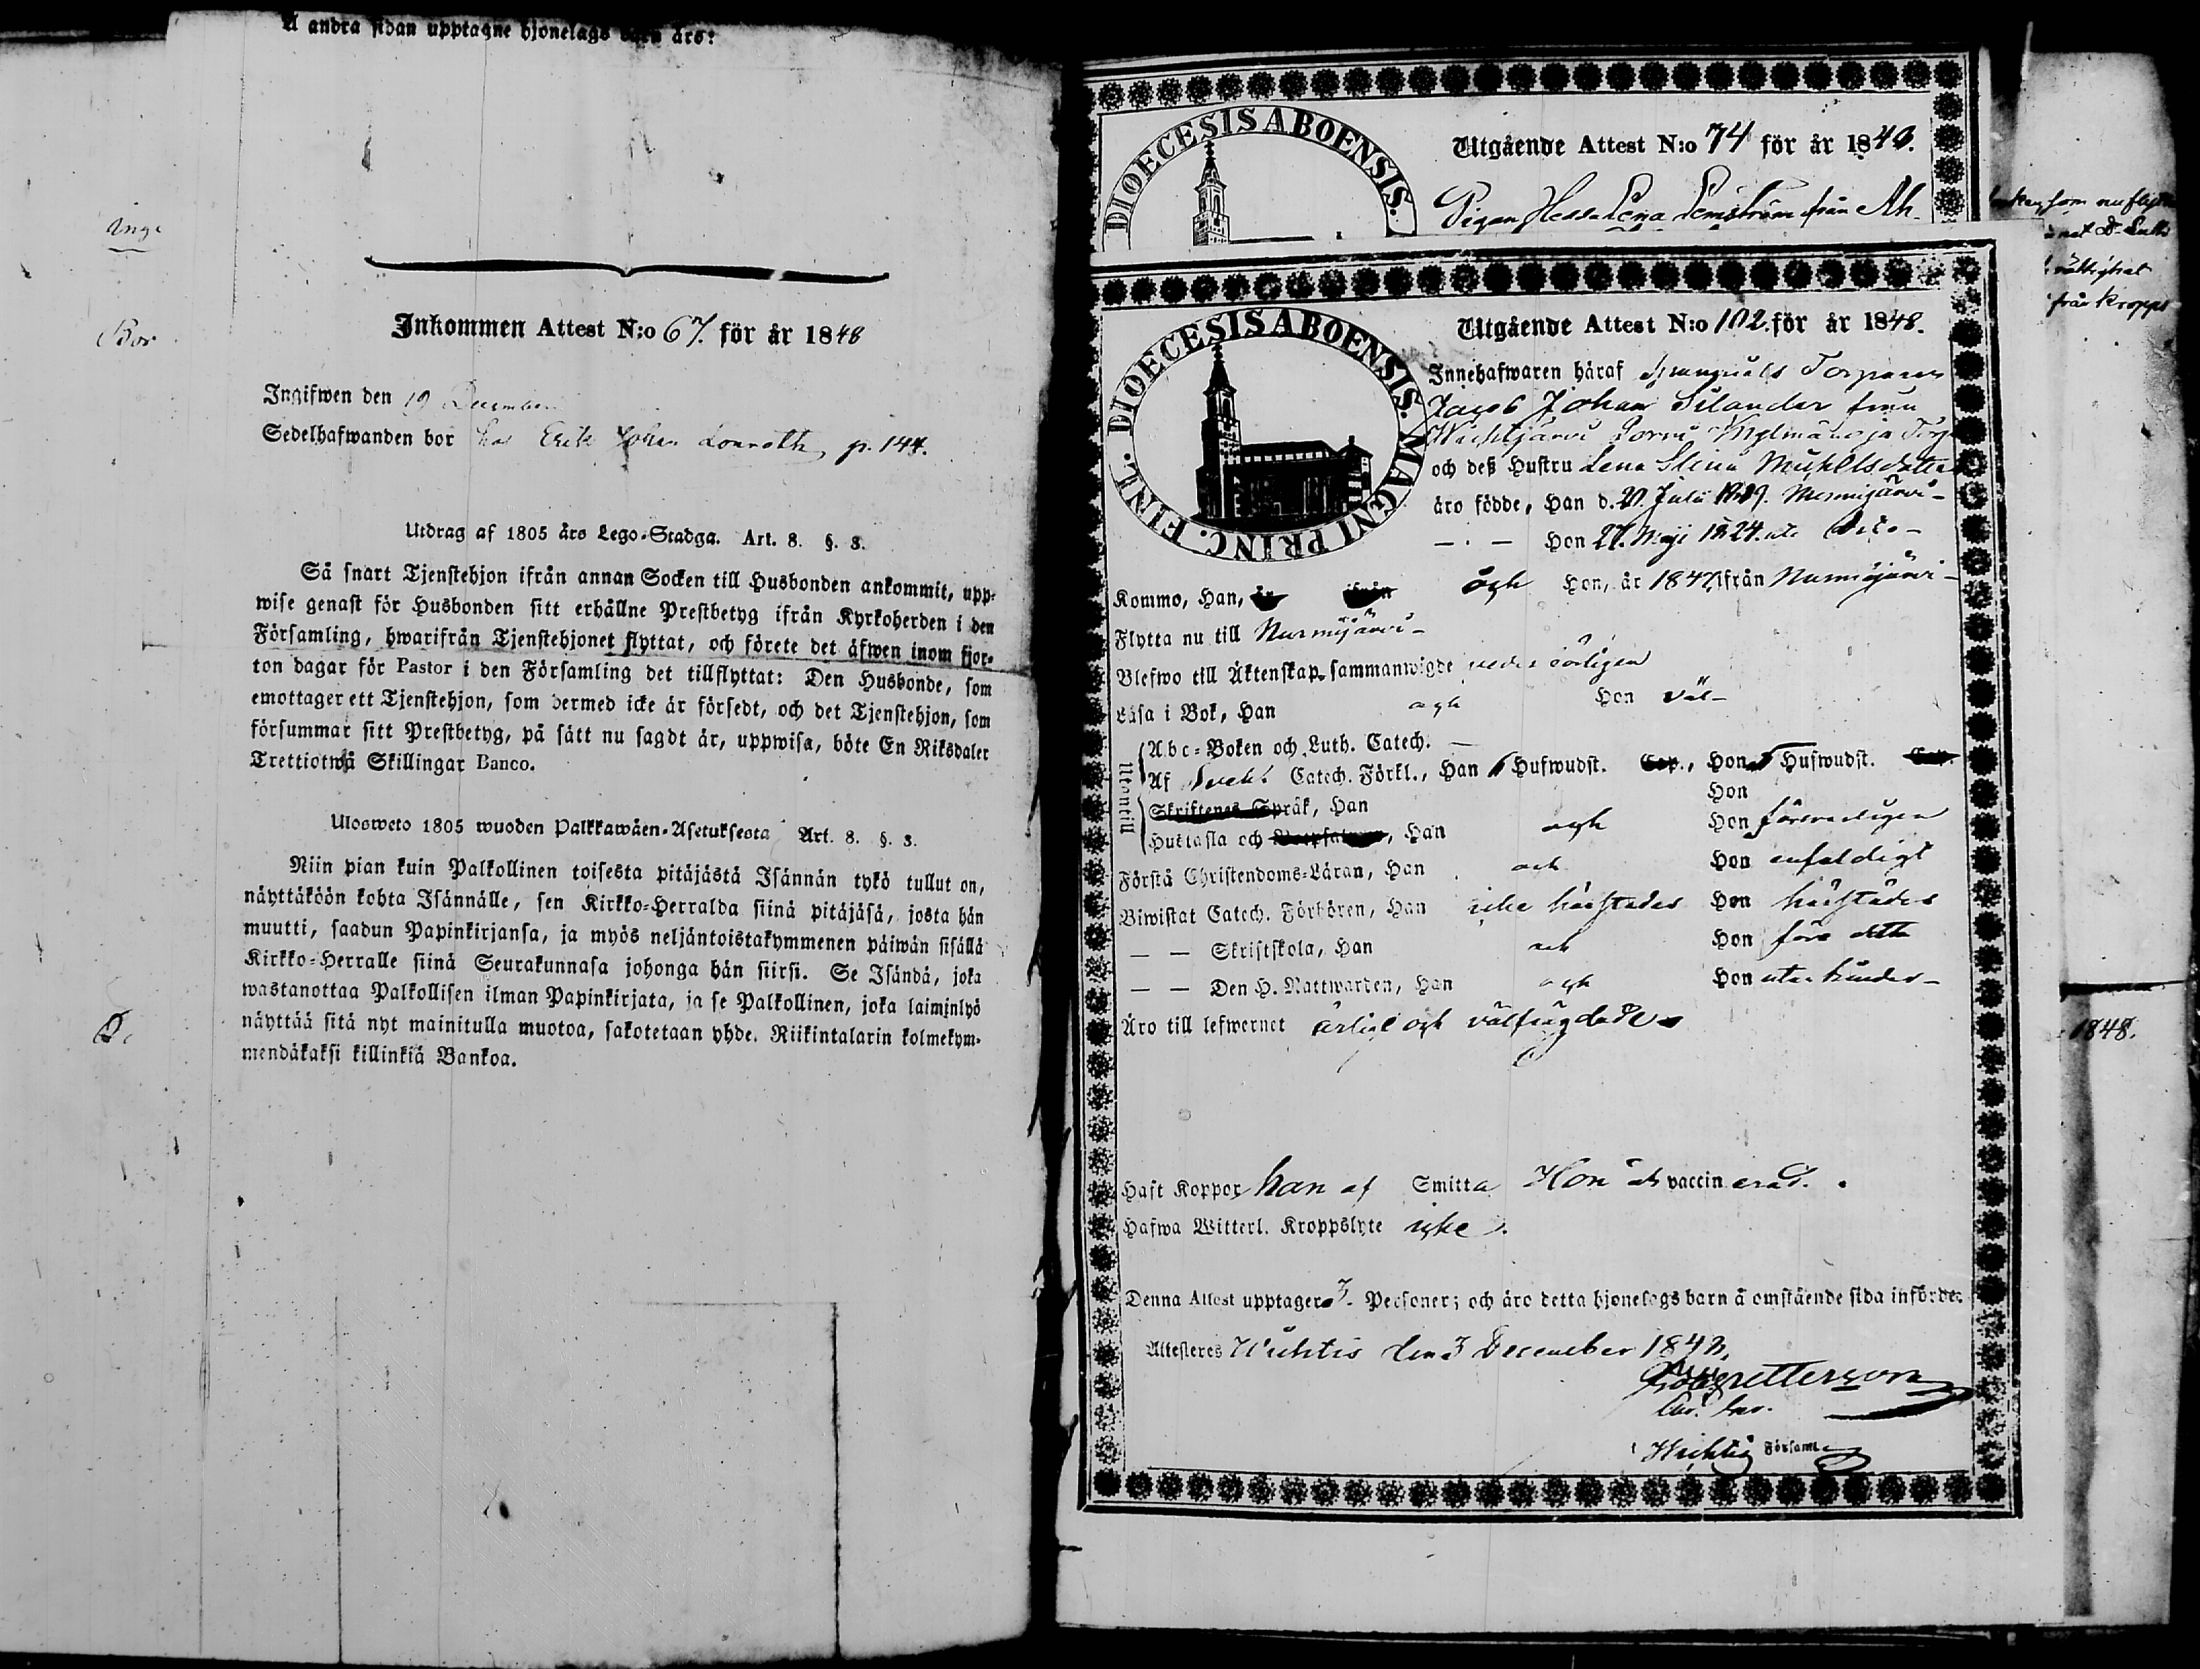 Å andra sidan upptagne hjonelags barn äro:
Inkommen Attest N:o 67. för år 1848
Ingifwen den 19 December
Sedelhafwanden bor hos Erik Johan Lönroth p. 144.
Utdrag af 1805 års Lego-Stadga. Art. 8. §. 3.
Så snart Tjenstehjon ifrån annan Socken till Husbonden ankommit, upp-
wise genast för Husbonden sitt erhållne Prestbetyg ifrån Kyrkoherden i den
Församling, hwarifrån Tjenstehjonet flyttat, och förete det äfwen inom fjor-
ton dagar för Pastor i den Församling det tillflyttat: Den Husbonde, som
emottager ett Tjenstehjon, som dermed icke är försedt, och det Tjenstehjon, som
försummar sitt Prestbetyg, på sätt nu sagdt är, uppwisa, böte En Riksdaler
Trettiotwå Skillingar Banco.
Ulosweto 1805 wuoden Palkkawäen-Asetuksesta Art. 8. §. 3.
Niin pian kuin Palkollinen toisesta pitäjästä Isännän tykö tullut on,
näyttäköön kohta Isännälle, sen Kirkko-Herralda siinä pitäjäsä, josta hän
muutti, saadun Papinkirjansa, ja myös neljäntoistakymmenen päiwän sisällä
Kirkko-Herralle siinä Seurakunnasa johonga hän siirsi. Se Isändä, joka
wastanottaa Palkollisen ilman Papinkirjata, ja se Palkollinen, joka laiminlyö
näyttää sitä nyt mainitulla muotoa, sakotetaan yhde. Riikintalarin kolmekym-
mendäkaksi killinkiä Bankoa.
Inge
Bor
DIOECESIS ABOENSIS.
Utgående Attest N:o 74 för år 1848.
Pigan Hedda Lena Lemström från Ah-
DIOECESIS ABOENSIS. MAGNI PRINC. FINL.
Utgående Attest N:o 102. för år 1848.
Innehafwaren häraf Torparen
Jacob Johan Silander från
och deß Hustru Lena Stina
äro födde, Han d. 20 Juli Nurmijärvi-
— . — Hon 27. Maji 1824.
Kommo, Han, och Hon, år 1847 ifrån Nurmijärvi-
Flytta nu till Nurmijärvi-
Blefwo till Äktenskap sammanwigde
Läsa i Bok, Han och Hon väl-
Utantill
Abc-Boken och Luth. Catech. —
Af Svebi. Catech. Förkl., Han Hufwudst. Cap., Hon Hufwudst. Cap.
Skriftenes Språk, Han Hon
Hustafla och, Han och Hon försvarligen
Förstå Christendoms-Läran, Han och Hon enfaldigt
Biwistat Catech. Förhören, Han icke härstädes Hon härstädes
— — Skriftskola, Han och Hon före detta
— — Den H. Nattwarden, Han och Hon
Äro till lefwernet ärlige och välfrägdade
Haft Koppor han af Smitta Hon är vaccinerad.
Hafwa Witterl. Kroppslyte icke.
Denna Attest upptager 3. Personer; och äro detta hjonelags barn å omstående sida införde.
Attesteres Wichtis den 3 December 1848.
i Wichtis Församl.
från kropps
1848.